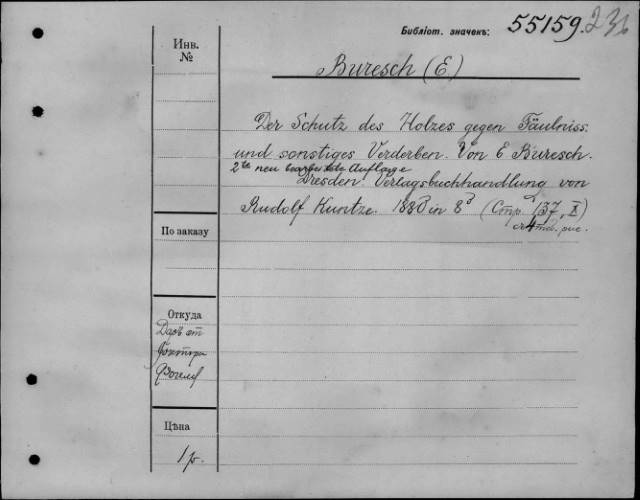 Библіот. значекъ: 55159.
Инв.
№
Buresch (E.)
Der Schutz des Holzes gegen Fäulniss
und sonstiges Verderben. Von E Buresch.
2te neu bearbeitete Auflage
Dresden. Verlagsbuchhandlung von
Rudolf Kuntze. 1880 in 8º (Стр. 137, X)
с 4 рис.
По заказу
Откуда
Даръ от
Доктора
Цѣна
1 р.